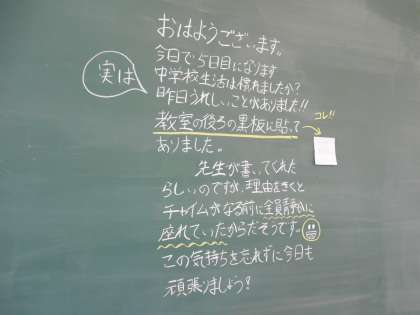 おはようございます。
今日で5日目になります
中学校生活は慣れましたか?
昨日うれしいことがありました!!
実は
教室の後ろの黒板に貼って
コレ!!
ありました。
先生が書いてくれた
らしいのですが、理由をきくと
チャイムがなる前に全員静かに
座れていたからだそうです。
この気持ちを忘れずに今日も
頑張りましょう?